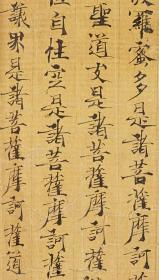 羅蜜多是諸菩薩摩訶
聖道支是諸菩薩摩訶薩
性自性空是諸菩薩摩訶薩
界是諸菩薩摩訶薩道